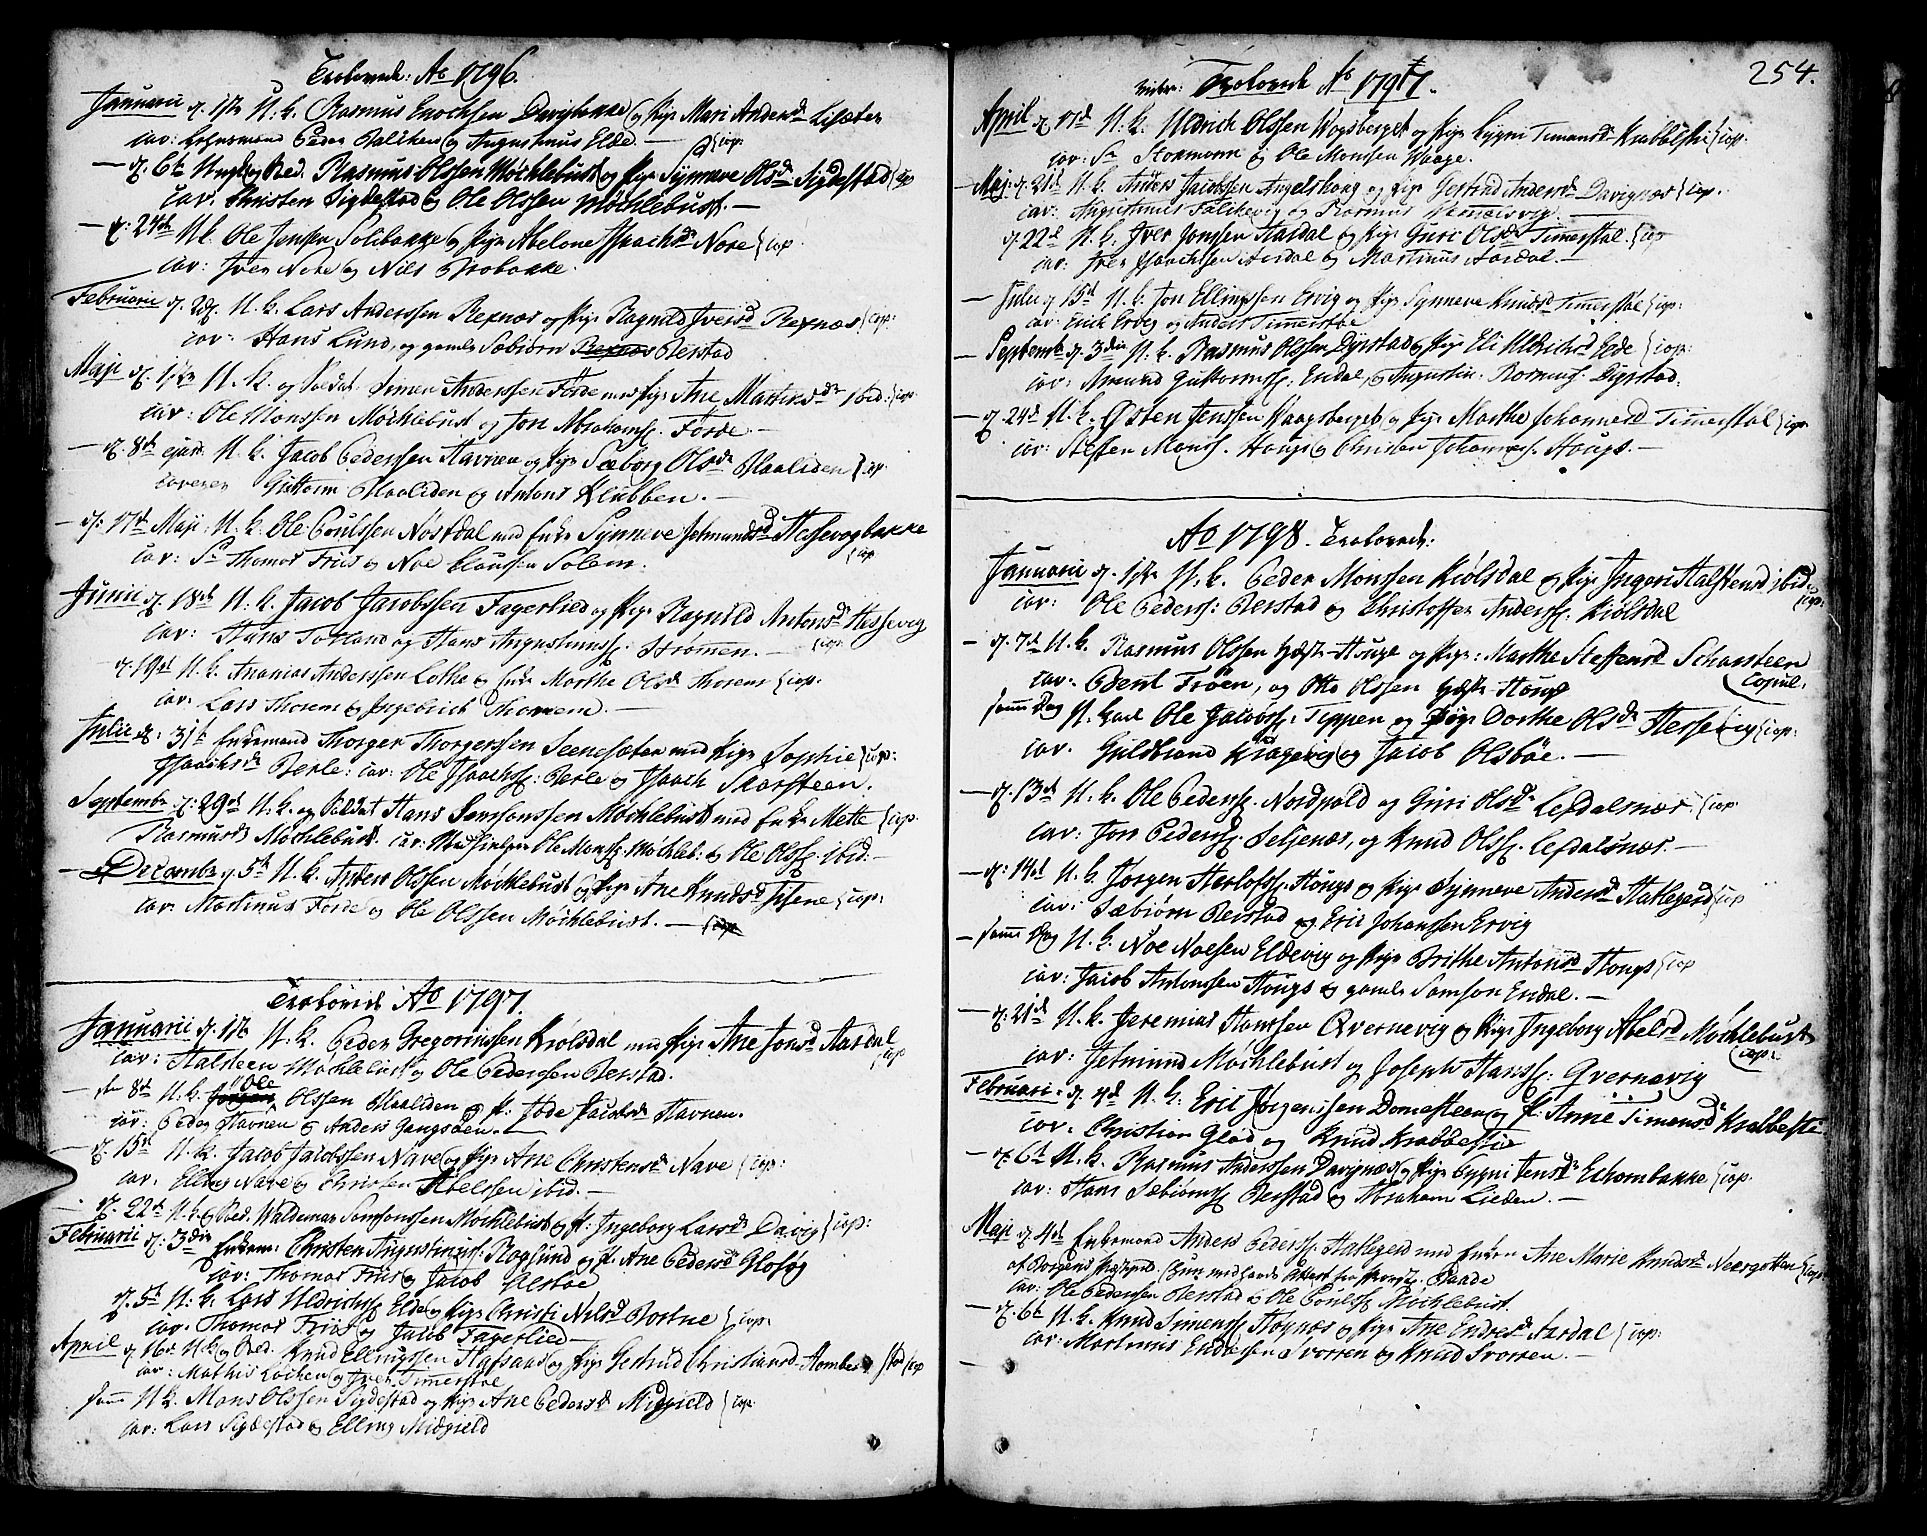 Trolovede: Ao 1796.
Januarii d. 1ste U. K. Rasmus Enochsen Davigbakke og Pige Mari Andersd. Lisæter
cav: Lehnsmand Peder Balchen og Augustinus Elde. — cop:
— d. 6te Ungk. og Sold. Rasmus Olssen Møchlebust og Pige Synneve Olsd. Sigdestad cop
cav. Christen Sigdestad og Ole Olssen Møchlebust. —
— d: 24de U. K. Ole Jenssen Solibakke og Pige Abelone Isaachsdr Nore cop
cav: Iver Nore og Niels Probakke.
Februarii d. 2d. U. K. Lars Anderssen Rexnæs og Pige Ragnild Iversd. Rexnæs cop:
cav: Hans Lund, og gamle Sæbiørn Berstad
Maji d. 1ste U. K. og Soldat Simen Anderssen Førde med Pige Ane Martinsdr ibid. cop:
cav: Ole Monssen Møchlebust og Jon Abrahams. Førde. —
— d. 8de ejusd. U. K. Jacob Pederssen Havnen og Pige Seeborg Olsdr Maaliden cop
caverer Guttorm Maaliden og Antons Klubben. —
— d: 17de Maji: U. K. Ole Poulssen Nøstdal med Enke Synneve Jetmundsd. Hessevogbakke
cav: Sr Thomas Friis og Noe Claussen Solem. cop
Junii d. 18de U. K. Jacob Jacobssen Fagerlied og Pige Ragnild Antonsdr Hessevig
cav: Hans Totland og Hans Augustinuss. Strømmen. — cop:
d. 19de U. K. Ananias Anderssen Lothe og Enke Marthe Olsdr Thorem cop:
cav: Lars Thorem og Ingebrict Thorem. —
Julii d: 31te Enkemand Thorger Thorgerssen Seenesæter med Pige Sophie cop:
Isaachsdr Berle: cav: Ole Isaachs: Berle og Isaach Skarsteen.
Septembr d: 29de U. K. og Soldat Hans Samsonssen Møchlebust med Enke Mette cop:
Rasmusd. Møchlebust. cav: Ole Monss. Møchleb: og Ole Olss. ibid. —
— Decembr d. 5te U. K. Anders Olssen Møchlebust og Pige Ane Knudsd. Hisene cop:
cav: Martinus Førde og Ole Olssen Møchlebust. — cop
Trolovede Ao 1797.
Januarii d. 1ste U. K. Peder Gregoriussen Kiølsdal med Pige Ane Jonsd. Aardal cop
cav: Halsteen Møchlebust og Ole Pederssen Berstad.
— den 8de U. K. Jørgen Ole Olssen Maaliden og P. Jøde Jacobsdr Havnen.
cav: Peder Havnen og Anders Gangsøen. —
— d. 15de U. K. Jacob Jacobssen Nave og Pige Ane Christensd. Nave cop:
cav: Elling Nave og Christen Abelssen ibid. —
— d. 22de U. K. og Sold. Waldemar Samsonssen Møchlebust og P. Ingeborg Larsdr Davig cop:
Februarii d: 3die Enkem: Christen Augustinuss: Rogsund og P. Ane Pedersdr Glosøg
cav: Thomas Friis og Jacob Olsbøe
d. 5te U. K. Lars Uldrichss. Elde og Pige Christi Nilsd. Bortne cop:
cav: Thomas Friis og Jacob Fagerlied —
April d. 16de U. K. og Sold. Knud Ellingssen Hafsaas og Pige Gertrud Christiansd. cop
cav: Mathis Lochen og Iver Timerstøe
samme U. K. Mons Olssen Sigdestad og Pige Ane Pedersdr Midgield cop:
cav: Lars Sigdestad og Elling Midgield
254.
Trolovede Ao 1797.
April d. 17de U. K. Uldrich Olssen Wogsberget og Pige Sygni Timansdr Krabbestie cop:
cav: Sr Stormann og Ole Monssen Waage.
— Maj: d. 21de U. K. Anders Jacobssen Angelshaag og Pige Gertrud Andersd. Davignæs cop.
cav: Augustinus Falchevig og Rasmus Nemnisvig. —
d. 22de U. K. Iver Jonssen Aardal og Pige Guri Olsdr Timerstøl. cop
cav: Iver Isaachsen Aardal og Martinus Aardal. —
— Julii d 15de U. K. Jon Ellingssen Ervig og Pige Synneve Knudsd. Timerstøe cop:
cav: Erich Ervig og Anders Timerstøe
— Septembr d. 3die U. K. Rasmus Olssen Dyrstad og Pige Eli Uldrichsd Elde cop:
cav: Amund Guttormss: Endal og Augustin: Rasmuss. Dyrstad.
— d. 24de U. K. Østen Jenssen Waagsberget og Pige Marthe Johannesd Timerstøl cop:
cav: Steffen Monss. Houge og Christen Johanness. Houge. —
Ao 1798. Trolovede:
Januarii d. 1ste U. K. Peder Monssen Kiølsdal og Pige Ingeri Halstensd ibid. cop:
cav: Ole Pederss: Berstad og Christoffer Anderss. Kiølsdal
— d. 7de U. K. Rasmus Olssen Houge og Pige: Marthe Steffensd Scharsteen
cav. Bent Frøen, og Otto Olssen Houge copul.
samme Dag U. Karl Ole Jacobss: Tippen og Pige Dorthe Olsdr Hessevig cop:
cav. Guldbrand Kragevig og Jacob Olsbøe. —
— d. 13de U. K. Ole Pederss. Nordpold og Guri Olsdr Lefdalsnæs. cop
cav: Jon Pederss. Seljenæs, og Knud Olss. Lefdalsnæs. —
— d: 14de U. K. Jørgen Herlofss. Houge og Pige Synneve Andersd. Hatlegerd cop
cav: Sæbiørn Berstad og Eric Johanssen Ervig
— samme Dag U. K. Noe Noessen Eldevig og Pige Brithe Antonsd. Houge cop
cav: Jacob Antonssen Houge og gamle Samson Endal. —
— d: 21de U. K. Jeremias Hanssen Qvernevig og Pige Ingeborg Abelsd. Møchlebust cop:
cav: Jetmund Møchlebust og Joseph Hanss: Qvernevig
Februari: d. 4de U. K. Eric Jørgenssen Domesteen og P. Anne Timensdr Krabbestie
cav. Christian Glad og Knud Krabbestie
— d. 6te U. K. Rasmus Anderssen Davignæs og Pige Sygni Jensdr Echornbakke cop.
cav: Hans Sæbiørnss. Berstad og Abraham Lieden. —
Maji d. 4de Enkemand Anders Pederss. Hatlegerd med Enken Ane Marie Knudsdr Neergotten cop:
af Borgens Præstegield. Hun med havde Attest fra Provst Baade
cav: Ole Pedersen Berstad og Ole Poulss. Møchlebust.
— d. 6te U. K. Knud Simenss. Høynæs og Pige Ane Endresdr Aardal cop:
cav: Martinus Endressen Svorren og Knud Svorren. —